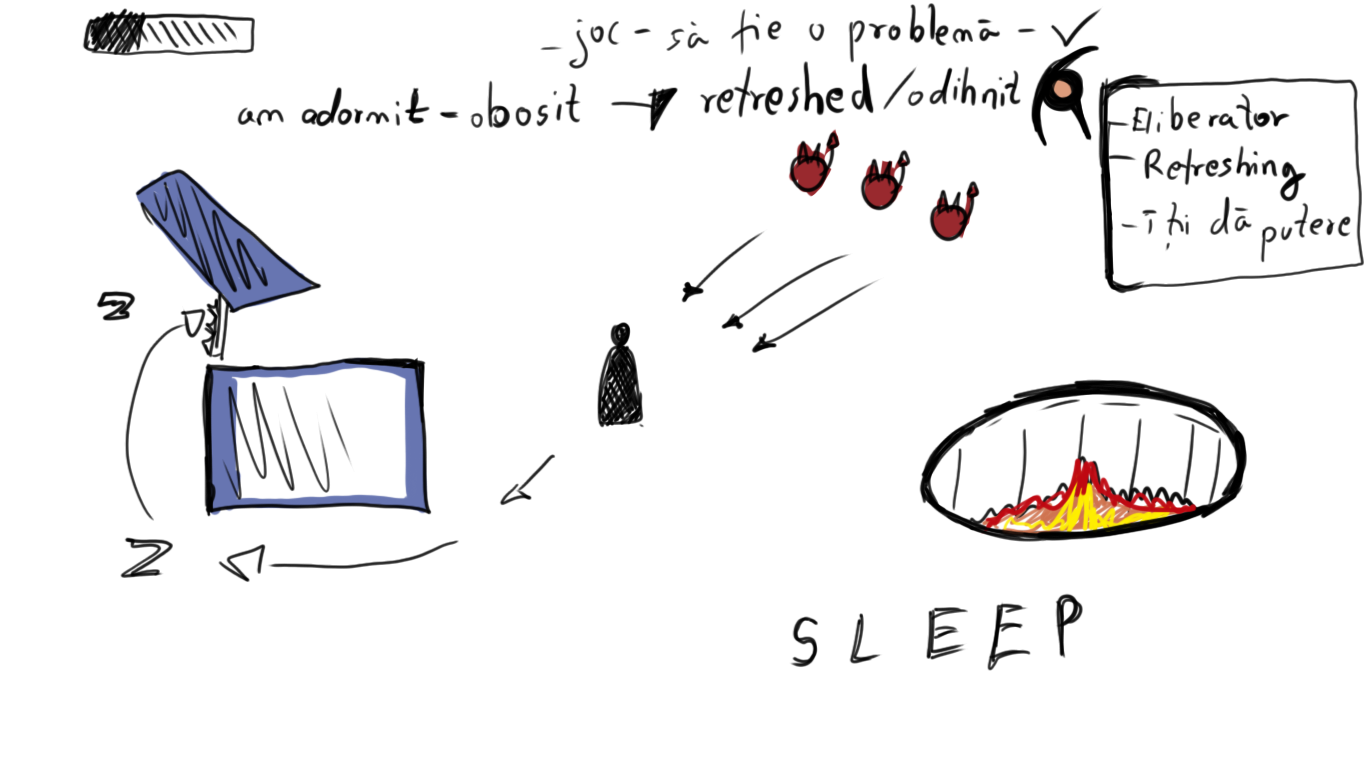 - joc - să fie o problemă - ✓
am adormit - obosit → refreshed / odihnit
- Eliberator
- Refreshing
- Îți dă putere
Z
Z
SLEEP